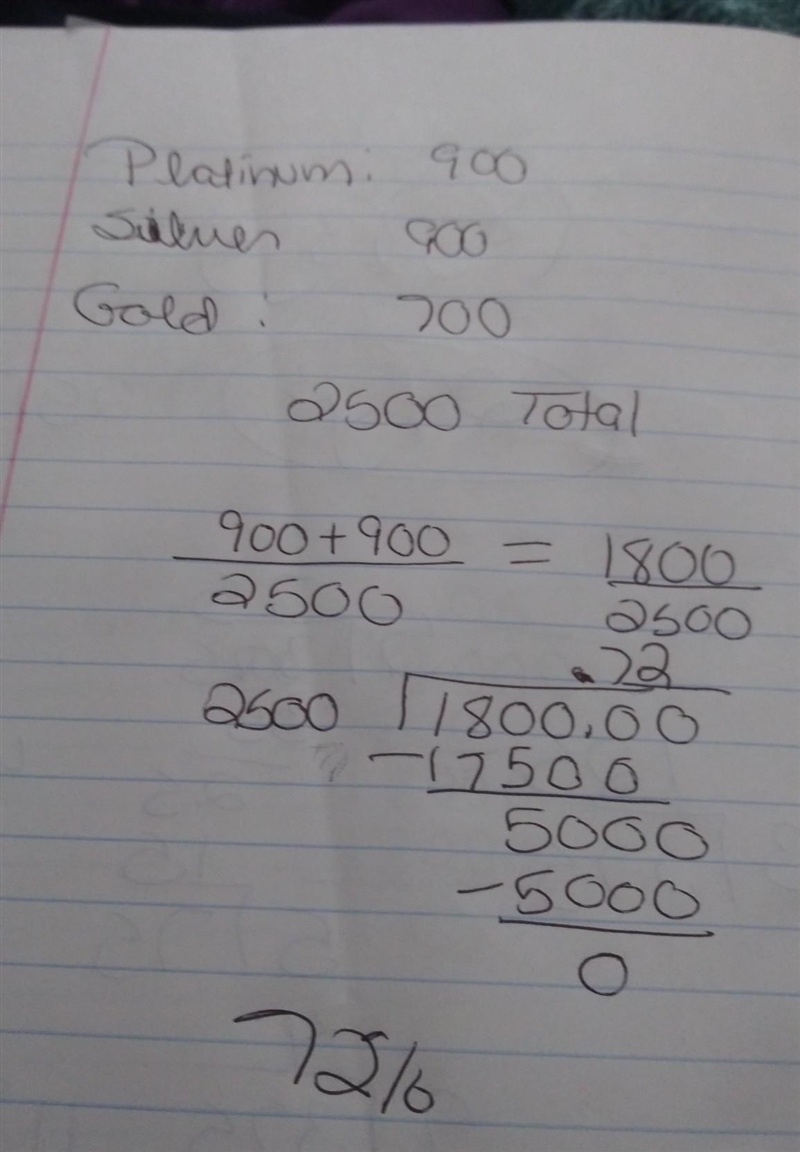 Platinum: 900
Silver 900
Gold: 700
2500 Total
900+900 = 1800
2500 2500
.72
2500 1800.00
-17500
5000
-5000
0
72%